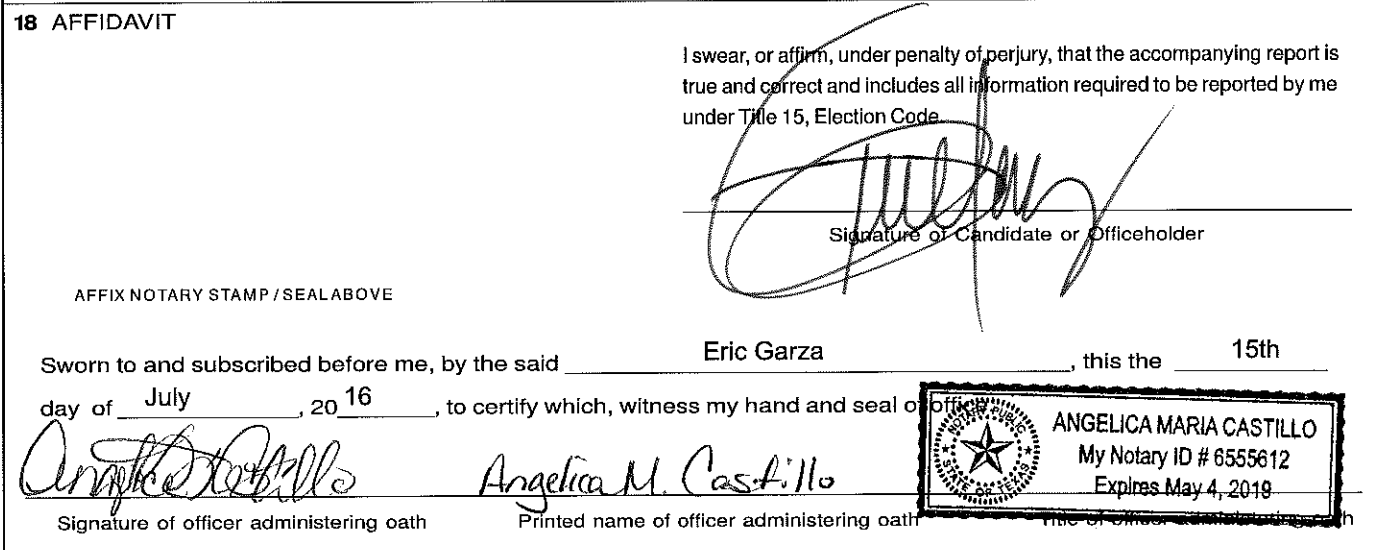 18 AFFIDAVIT
I swear, or affirm, under penalty of perjury, that the accompanying report is
true and correct and includes all information required to be reported by me
under Title 15, Election Code.
Signature of Candidate or Officeholder
AFFIX NOTARY STAMP / SEAL ABOVE
Sworn to and subscribed before me, by the said Eric Garza, this the 15th
day of July, 20 16, to certify which, witness my hand and seal of office.
NOTARY PUBLIC
STATE OF TEXAS
ANGELICA MARIA CASTILLO
My Notary ID # 6555612
Expires May 4, 2019
Angelica M. Castillo
Signature of officer administering oath Printed name of officer administering oath Title of officer administering oath